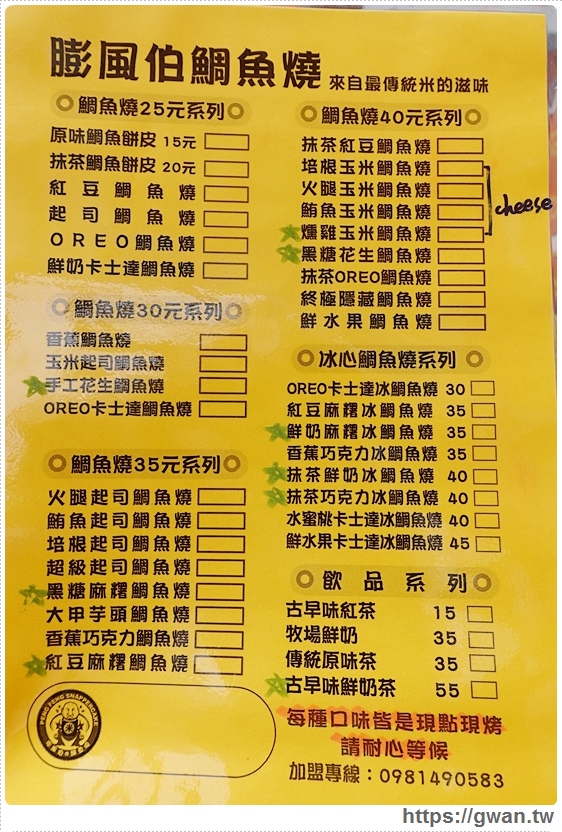 膨風伯鯛魚燒 來自最傳統米的滋味
鯛魚燒25元系列
原味鯛魚餅皮 15元
抹茶鯛魚餅皮 20元
紅豆鯛魚燒
起司鯛魚燒
OREO鯛魚燒
鮮奶卡士達鯛魚燒
鯛魚燒30元系列
香蕉鯛魚燒
玉米起司鯛魚燒
手工花生鯛魚燒
OREO卡士達鯛魚燒
鯛魚燒35元系列
火腿起司鯛魚燒
鮪魚起司鯛魚燒
培根起司鯛魚燒
超級起司鯛魚燒
黑糖麻糬鯛魚燒
大甲芋頭鯛魚燒
香蕉巧克力鯛魚燒
紅豆麻糬鯛魚燒
鯛魚燒40元系列
抹茶紅豆鯛魚燒
培根玉米鯛魚燒
火腿玉米鯛魚燒
鮪魚玉米鯛魚燒
燻雞玉米鯛魚燒
cheese
黑糖花生鯛魚燒
抹茶OREO鯛魚燒
終極隱藏鯛魚燒
鮮水果鯛魚燒
冰心鯛魚燒系列
OREO卡士達冰鯛魚燒 30
紅豆麻糬冰鯛魚燒 35
鮮奶麻糬冰鯛魚燒 35
香蕉巧克力冰鯛魚燒 35
抹茶鮮奶冰鯛魚燒 40
抹茶巧克力冰鯛魚燒 40
水蜜桃卡士達冰鯛魚燒 40
鮮水果卡士達冰鯛魚燒 45
飲品系列
古早味紅茶 15
牧場鮮奶 35
傳統原味茶 35
古早味鮮奶茶 55
每種口味皆是現點現烤
請耐心等候
加盟專線：0981490583
https://gwan.tw